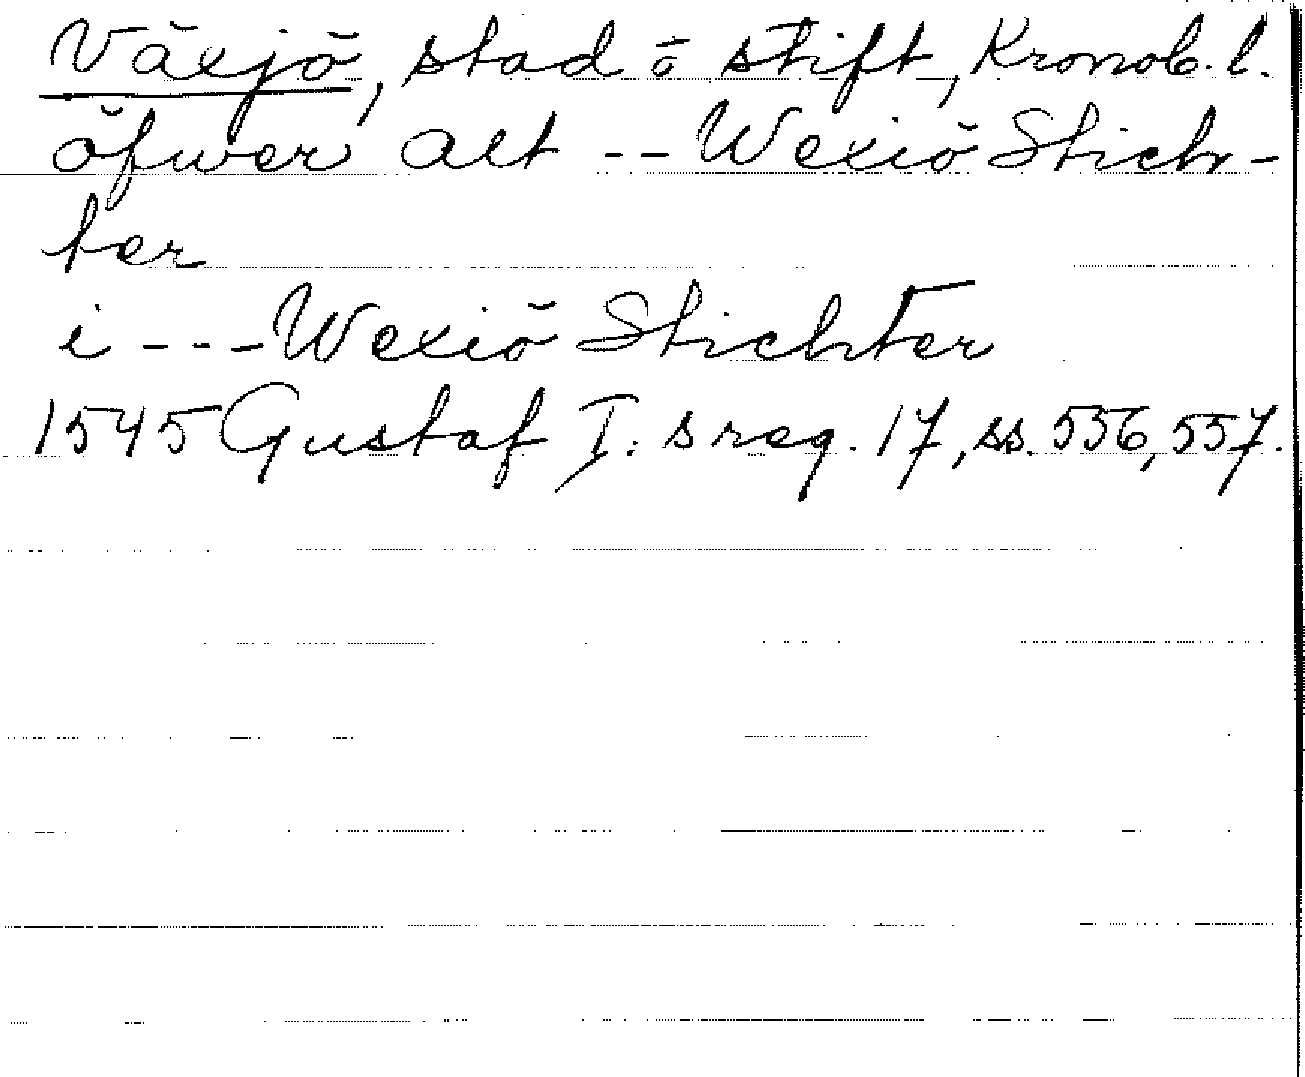 Växjö, stad o stift, Kronob. l.
öfwer alt -- Wexiö Stich-
ter
i --- Wexiö Stichter
1545 Gustaf I: s reg. 17, ss. 556, 557.